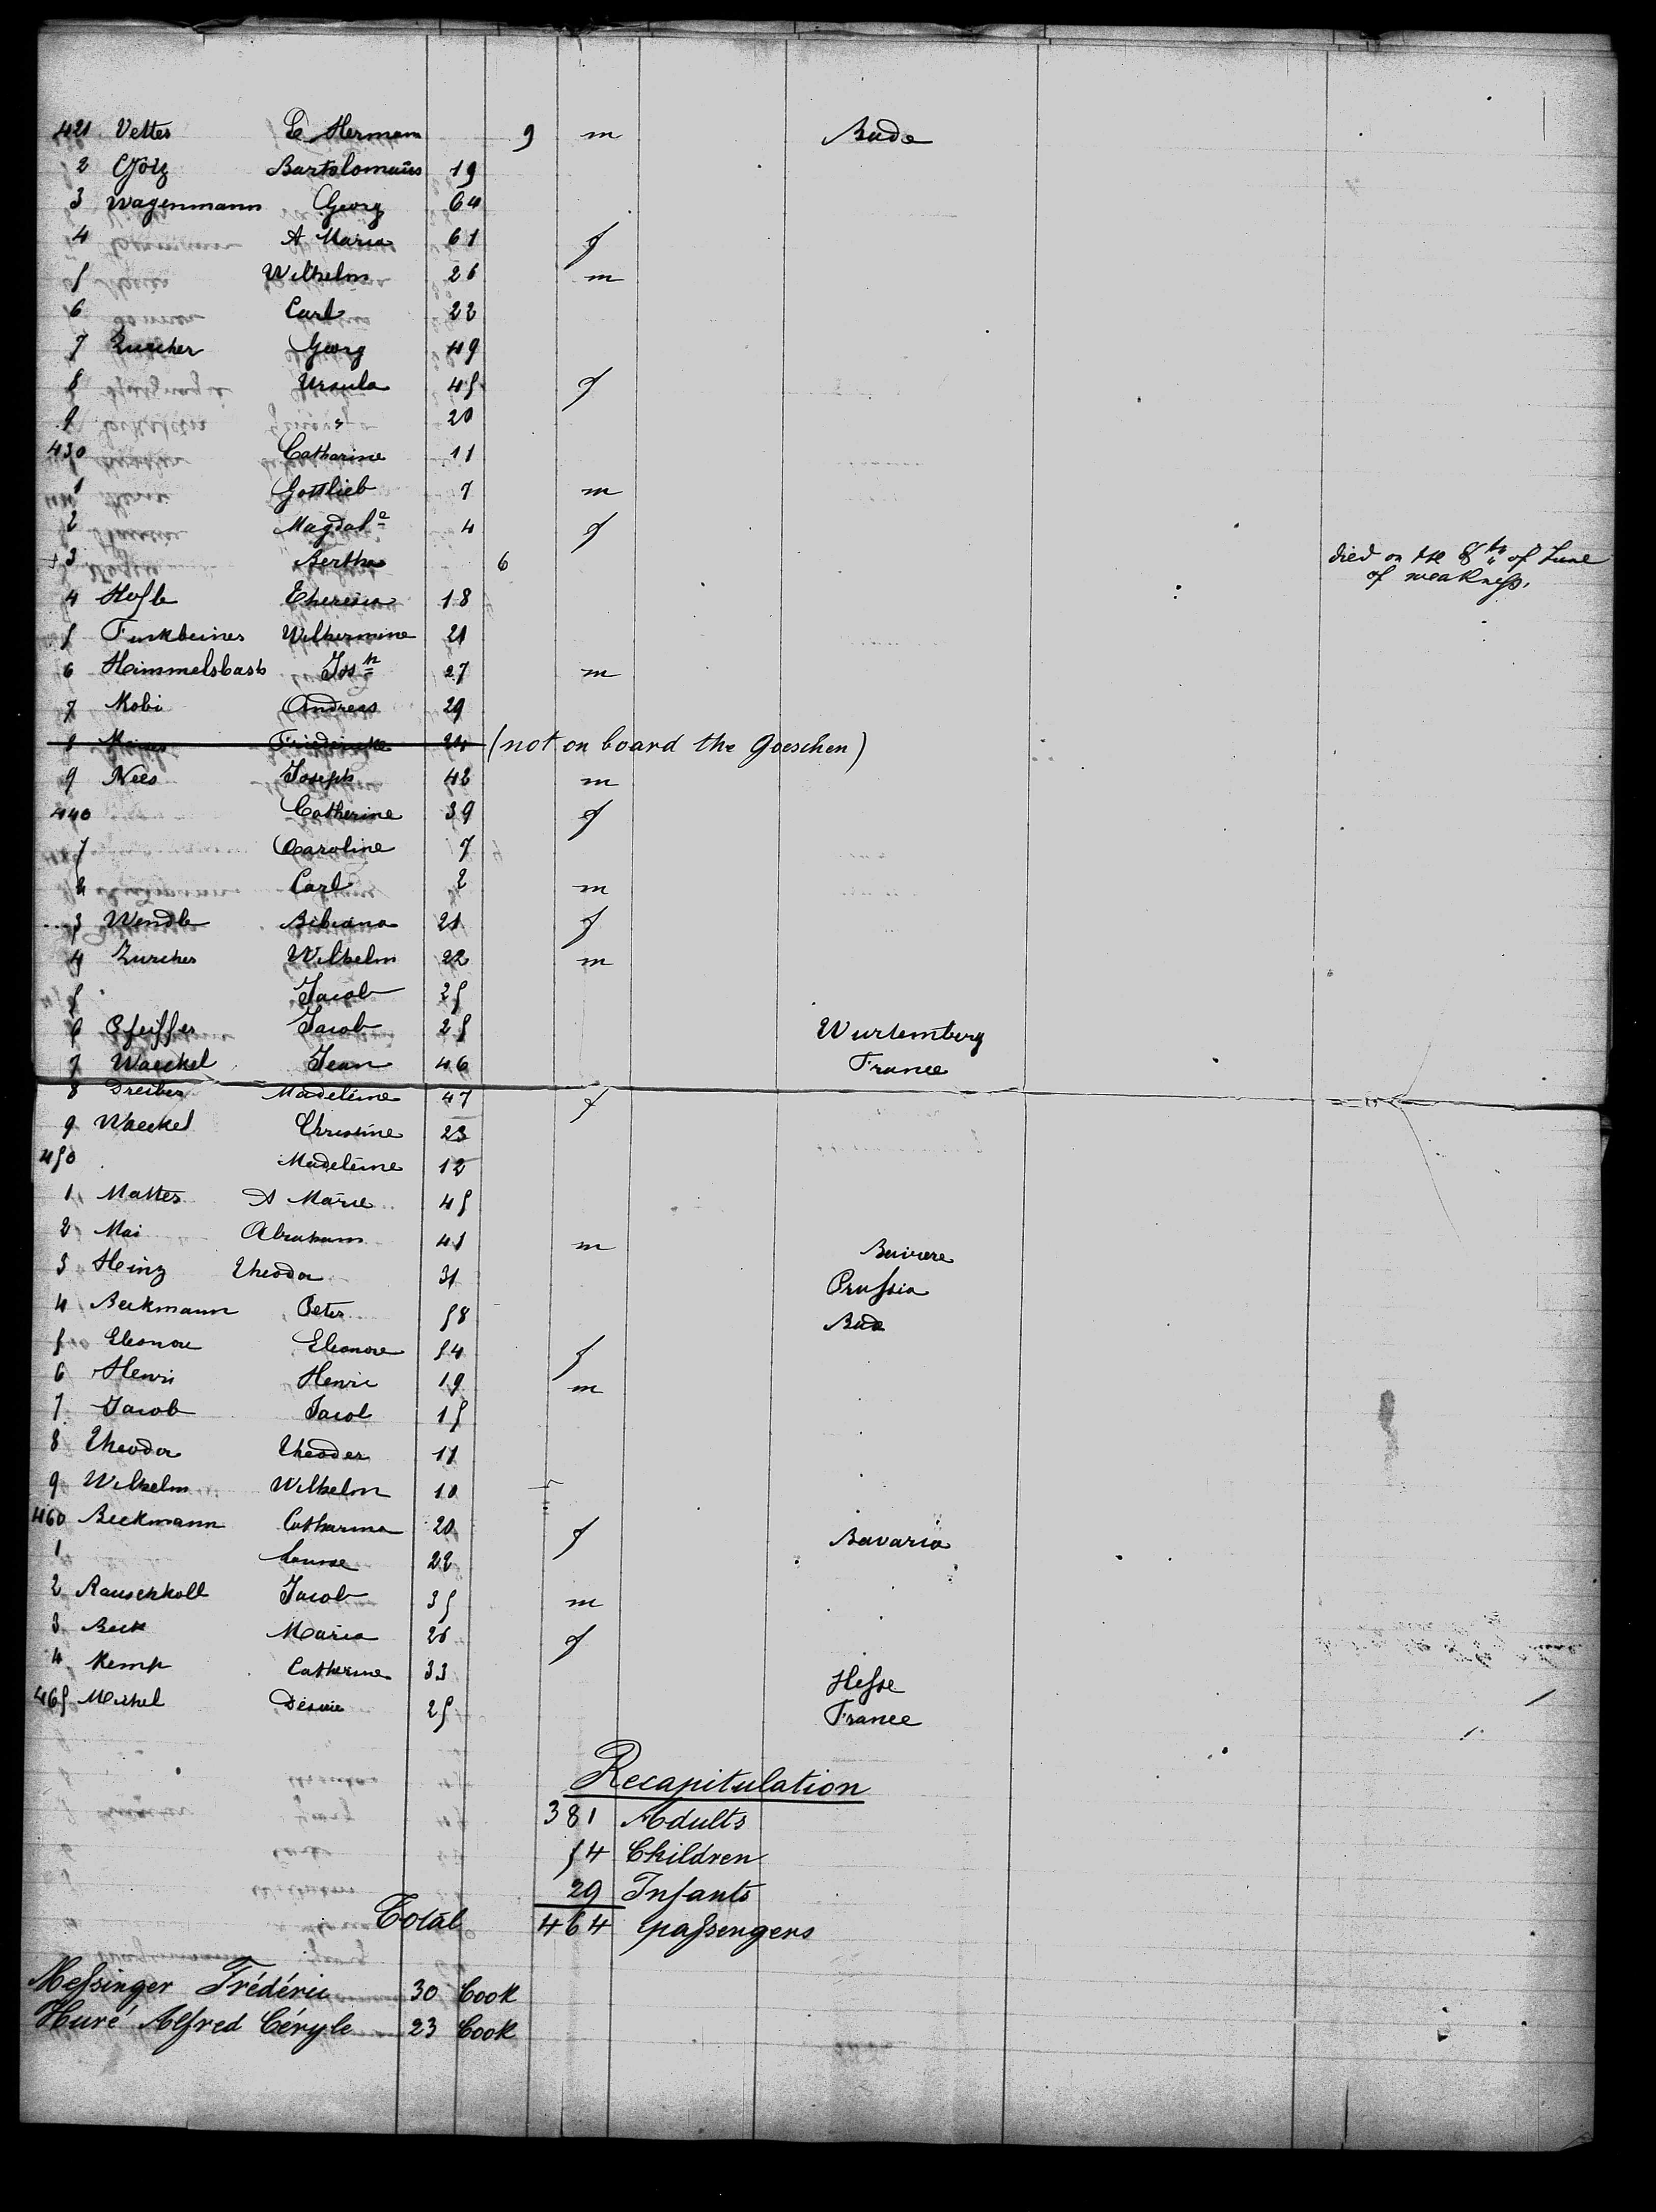 421 Vetter Le Hermann 9 m Bade
2 Götz Bartolomaüs 19
3 Wagenmann Georg 64
4 A Maria 61 f
5 Wilhelm 26 m
6 Carl 22
7 Zuricher Georg 49
8 Ursula 45 f
9 " 20
430 Catharine 11
1 Gottlieb 7 m
2 Magdale 4 f
+3 Bertha 6 died on the 8th of June
of weakness.
4 Hofle Theresia 18
5 Funkbeiner Wilhermine 21
6 Himmelsbach Josh 27 m
7 Kobi Andreas 29
8 Friedericke 24 (not on board the Goeschen)
9 Nees Joseph 42 m
440 Catherine 39 f
1 Caroline 7
2 Carl 2 m
3 Wendle Bibiana 21 f
4 Zuricher Wilhelm 22 m
5 Jacob 25
6 Pfeiffer Jacob 25 Wurtemberg
7 Waeckel Jean 46 France
8 Dreiber Madeleine 47 f
9 Waeckel Christine 23
450 Madeleine 12
1 Mattes A Marie 45
2 Mai Abraham 41 m Baviere
3 Heinz Theodor 31 Prussia
4 Beckmann Peter 58 Bade
5 Eleonore Eleonore 54 f
6 Henri Henri 19 m
7 Jacob Jacob 15
8 Theodor Theodor 11
9 Wilhelm Wilhelm 10
460 Beckmann Catharina 20 f Bavaria
1 Louise 22
2 Rauschkolb Jacob 35 m
3 Beck Maria 26 f
4 Kemp Catherine 33 Hesse
465 Michel Désirée 25 France
Recapitulation
381 Adults
54 Children
29 Infants
Total 464 passengers
Messinger Frédéric 30 Cook
Huré Alfred Céryle 23 Cook